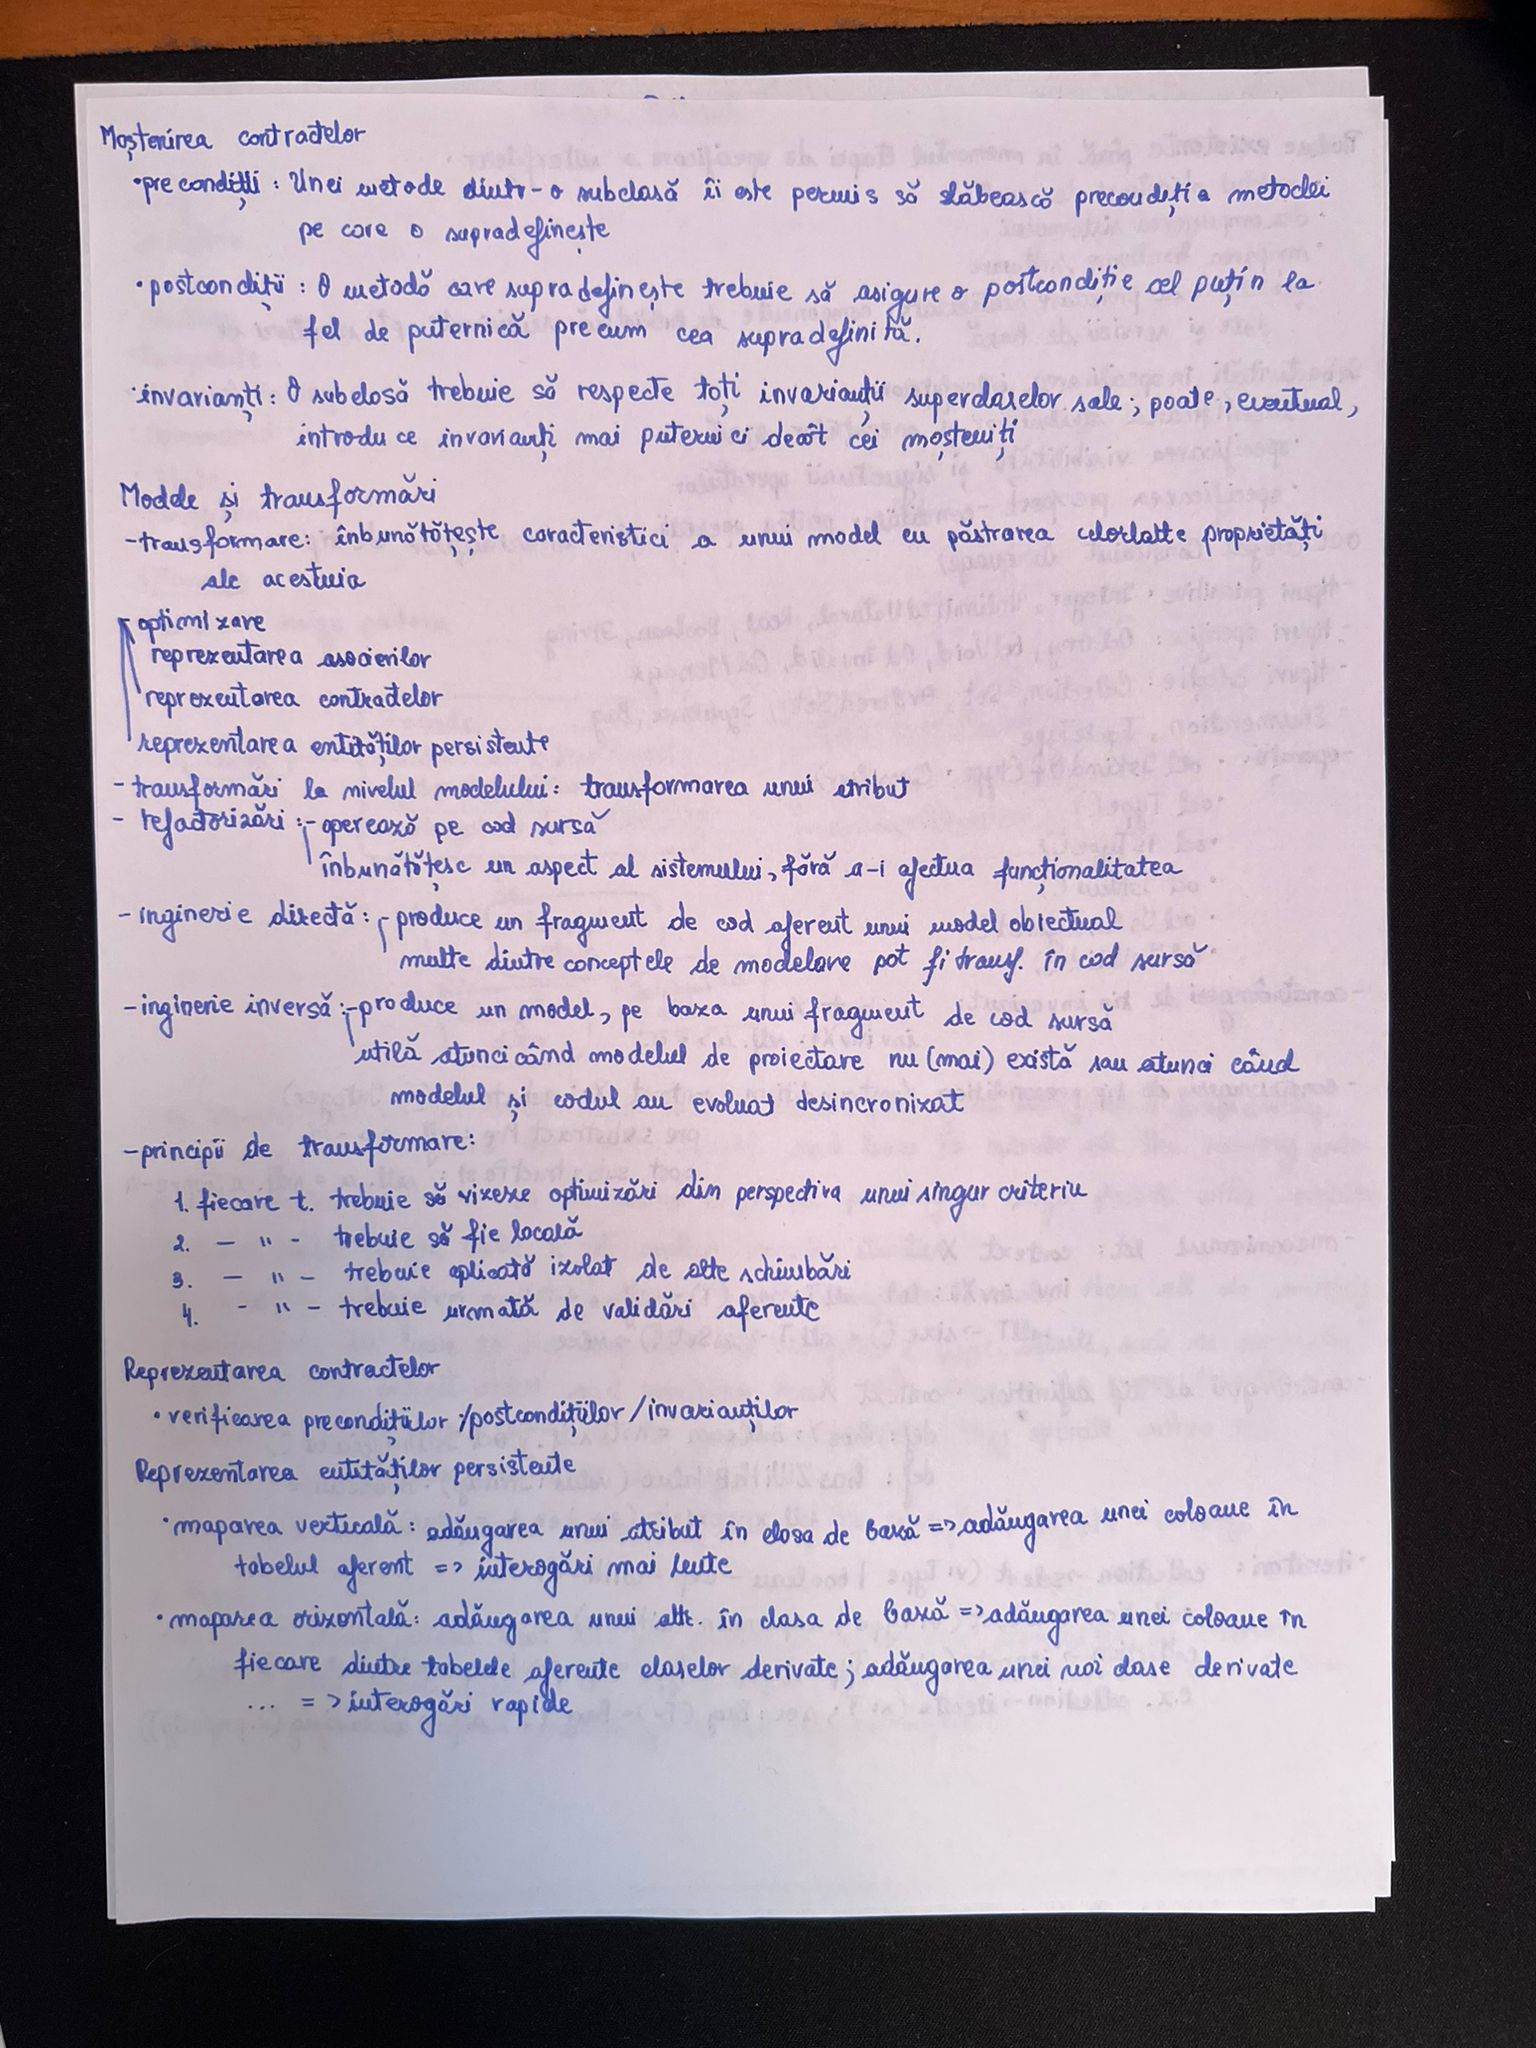 Moștenirea contractelor
• precondiții : Unei metode dintr-o subclasă îi este permis să slăbească precondiția metodei
pe care o supradefinește
• postcondiții : O metodă care supradefinește trebuie să asigure o postcondiție cel puțin la
fel de puternică precum cea supradefinită.
• invarianți : O subclasă trebuie să respecte toți invarianții superclaselor sale ; poate, eventual,
introduce invarianți mai puternici decât cei moșteniți
Modele și transformări
- transformare: înbunătățește caracteristici a unui model cu păstrarea celorlalte proprietăți
ale acestuia
optimizare
reprezentarea asocierilor
reprezentarea contractelor
reprezentarea entităților persistente
- transformări la nivelul modelului: transformarea unui atribut
- refactorizări : - operează pe cod sursă
înbunătățesc un aspect al sistemului, fără a-i afectua funcționalitatea
- inginerie directă : - produce un fragment de cod aferent unui model obiectual
multe dintre conceptele de modelare pot fi transf. în cod sursă
- inginerie inversă : - produce un model, pe baza unui fragment de cod sursă
utilă atunci când modelul de proiectare nu (mai) există sau atunci când
modelul și codul au evoluat desincronizat
- principii de transformare:
1. fiecare t. trebuie să vizeze optimizări din perspectiva unui singur criteriu
2. - " - trebuie să fie locală
3. - " - trebuie aplicată izolat de alte schimbări
4. - " - trebuie urmată de validări aferente
Reprezentarea contractelor
• verificarea precondițiilor /postcondițiilor /invarianților
Reprezentarea entităților persistente
• maparea verticală : adăugarea unui atribut în clasa de bază => adăugarea unei coloane în
tabelul aferent => interogări mai lente
• maparea orizontală: adăugarea unui atr. în clasa de bază => adăugarea unei coloane în
fiecare dintre tabelele aferente claselor derivate ; adăugarea unei noi clase derivate
... => interogări rapide